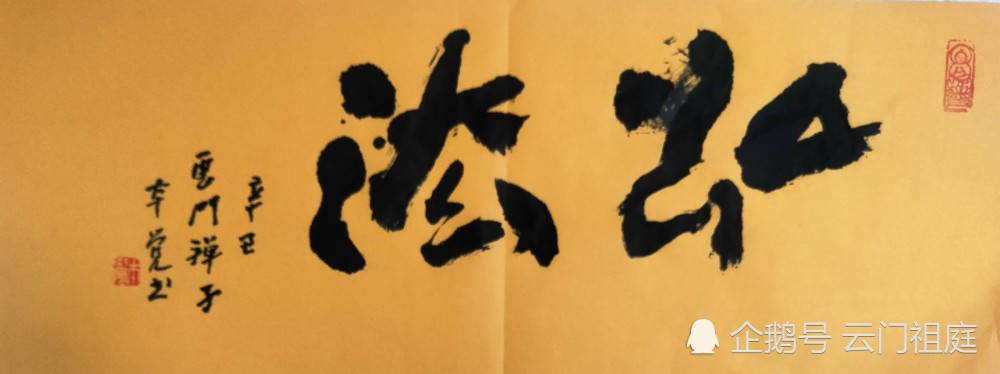 弘法
辛巳
雲門禅子
本觉书
企鹅号 云门祖庭